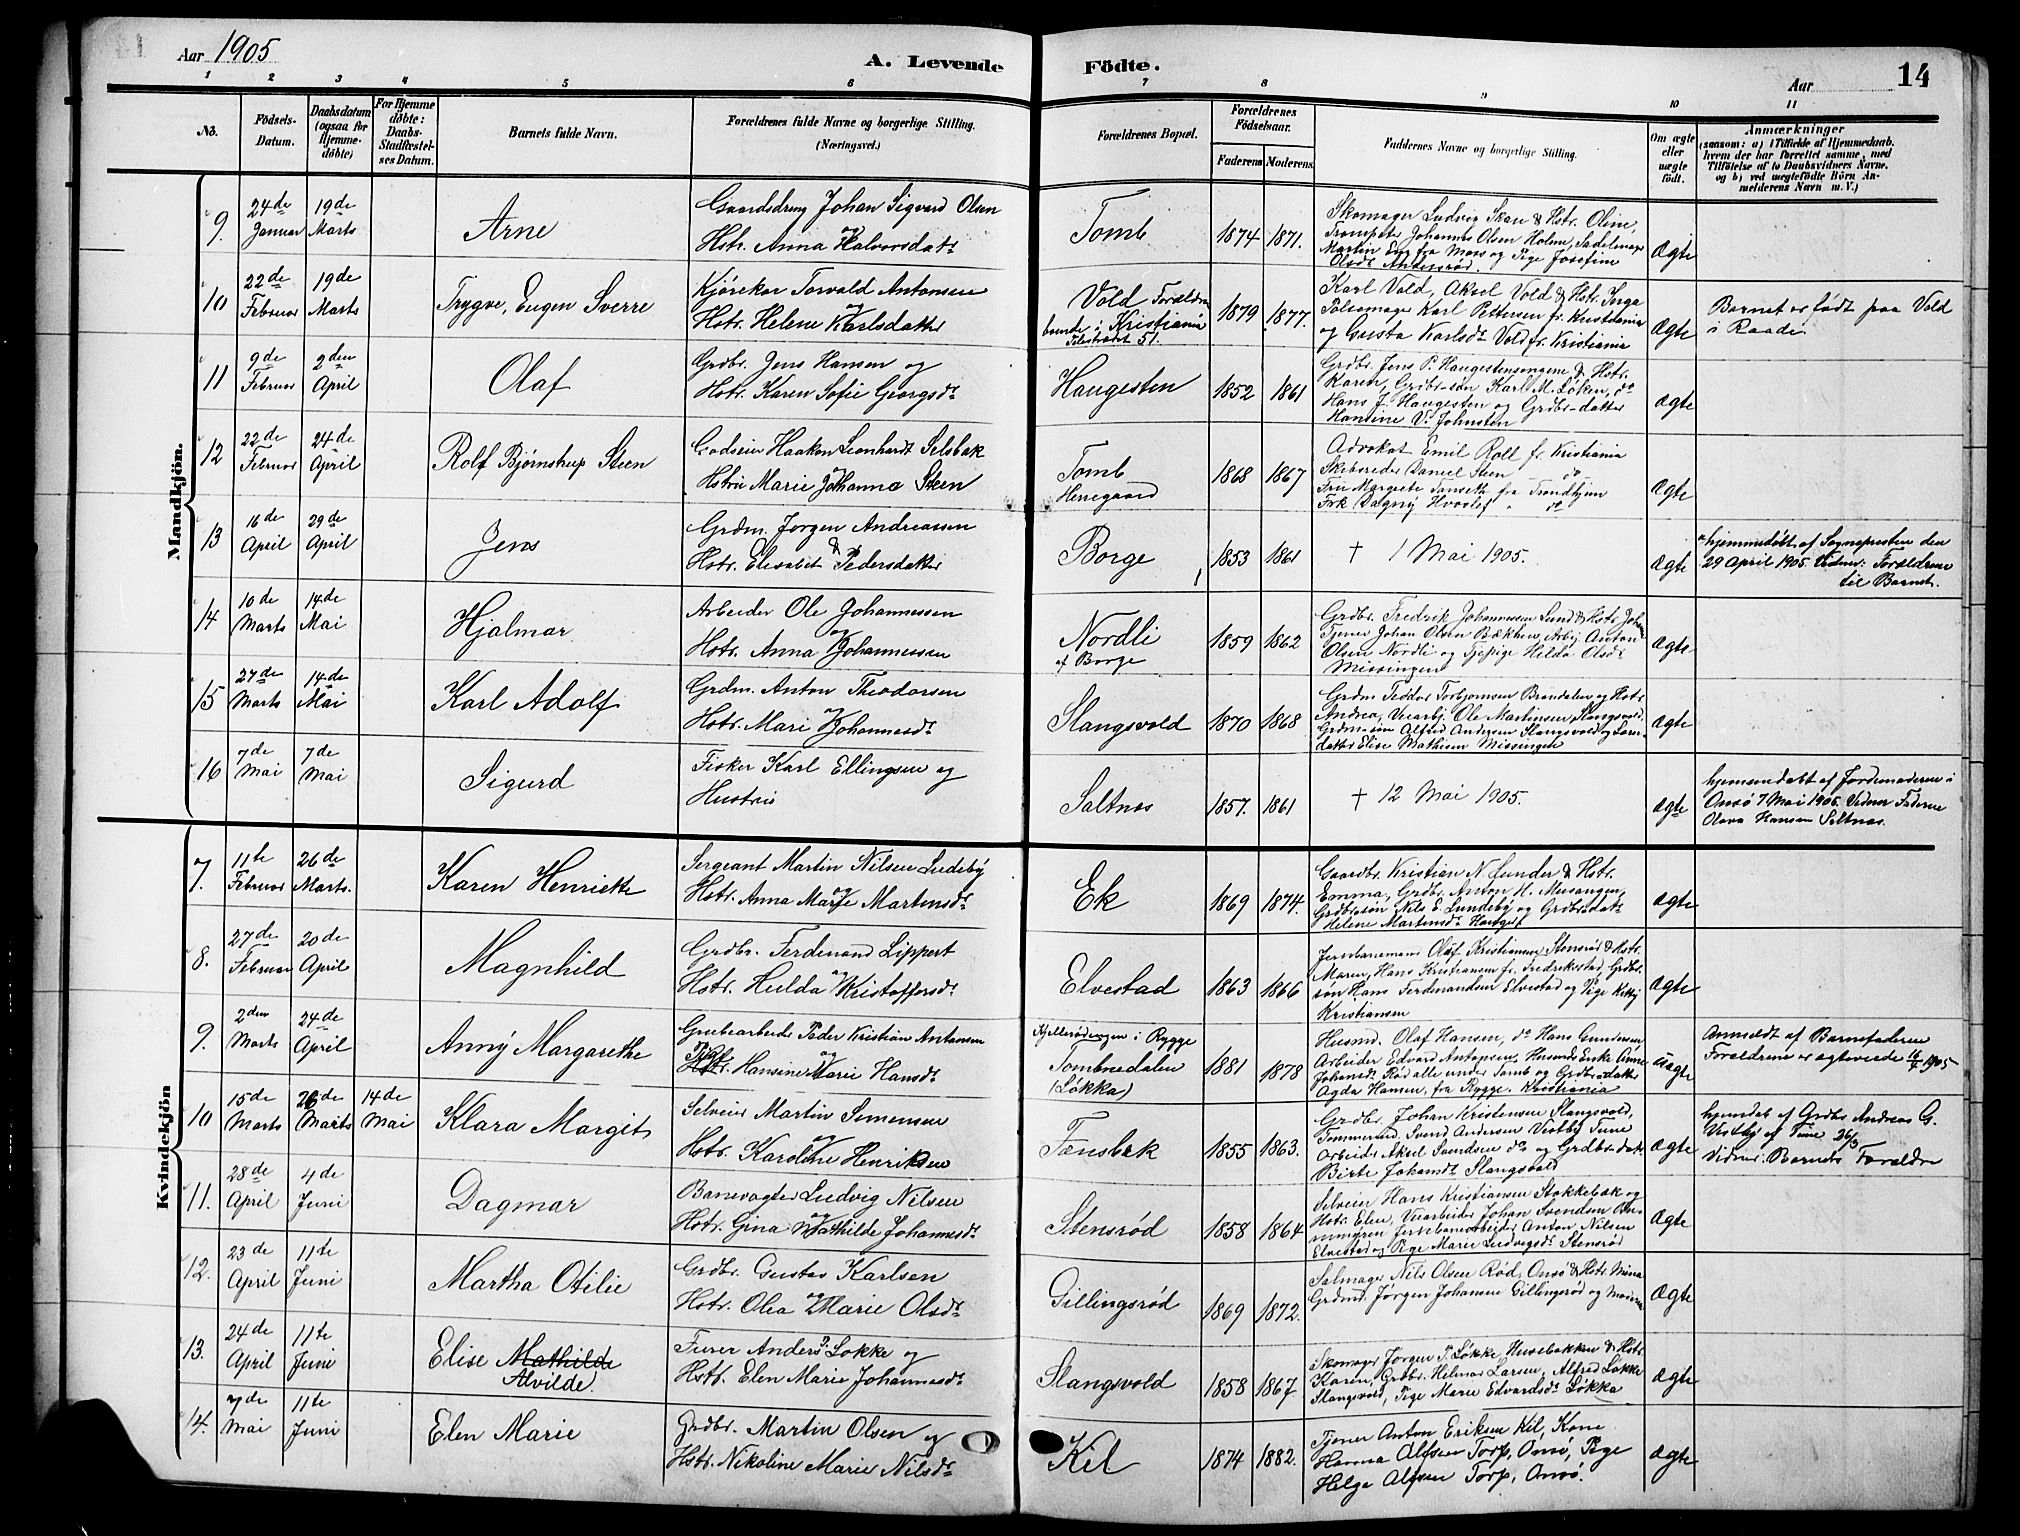 Aar 1905
A. Levende Födte.
Aar
14
1 2 3 4 5 6 7 8 9 10 11
No.
Födsels-
Datum.
Daabsdatum
(ogsaa for
Hjemme-
döbte)
For Hjemme
døbte:
Daabs-
Stadfæstel-
ses Datum.
Barnets fulde Navn.
Forældrenes fulde Navne og borgerlige Stilling.
(Næringsvei.)
Forældrenes Bopæl.
Forældrenes
Födselsaar.
Faderens
Moderens.
Faddernes Navne og borgerlige Stilling.
Om ægte
eller
uægte
født.
Anmærkninger
(saasom: a) i Tilfælde af Hjemmedaab,
hvem der har forrettet samme, med
Tilføielse af to Daabsvidners Navne,
og b) ved uægtefødte Börn An-
melderens Navn m. V.)
Mandkjön.
9. 24de Januar 19de Marts
Arne
Gaardsdreng Johan Sigvard Olsen
Hstr. Anna Halvorsdatr
Tomb
1874 1871.
Skomager Ludvig Skau & Hstr. Oline,
Trompeter Johannes Olsen Holme, Sadelmager
Martin fra Moss og Pige Josefine
Ægte
10 22de Februar 19de Marts
Trygve, Eugen Sverre
Kjørekar Torvald Antonsen
og
Hstr. Helene Karlsdatter
Vold Forældre
boende i Kristiania
51.
1879 1877.
Karl Vold, Aksel Vold & Hstr. Inga
Karl Pettersen fr. Kristiania
og Gusta Karlsdr Vold fr. Kristiania
Ægte
Barnet er født paa Vold
i Raade.
11 9de Februar 2den April
Olaf
Grdbr. Jens Hansen og
Hstr. Karen Sofie Georgsdr
Haugesten
1852 1861
Grdbr. Jens P. Haugestensengene & Hstr.
Karen, Grdbr-søn Karl M. Løken, do
Hans J. Haugesten og Grdbr-datter
Hansine V. Johnsten
Ægte
12 22de Februar 24de April
Rolf Bjørnstrup Steen
Godseier Haakon Leonhardt Selsbak
og
Hstru Marie Johanna Steen
Tomb
Herregaard
1868 1867
Advokat Emil Roll fr. Kristiania
Skibsreder Daniel Steen do
Fru Margrete fra Trondhjem
Frk Dagny do
Ægte
13 16de April 29de April
Jens
Grdm. Jørgen Andreassen
&
Hstr. Elisabet Pedersdatter
Borge
1853 1861
† 1 Mai 1905.
Ægte
hjemmedøbt af Sognepresten den
29 April 1905. Vidner: Forældrene
til Barnet.
14 10de Marts 14de Mai
Hjalmar
Arbeider Ole Johannessen
og
Hstr. Anna Johannessen
Nordli
af Borge
1859 1862
Grdbr. Fredrik Johannessen Lund & Hstr.
Tjener Johan Olsen Anton
Olsen Nordli og Tjepige Helda Olsdr
Missingen
Ægte
15 27de Marts 14de Mai
Karl Adolf
Grdm. Anton Theodorsen
og
Hstr. Mari Johannesdr
Slangsvold
1870 1868
Grdm Torbjørnsen Brandalen og Hstr.
Andrea, Ole Martinsen Slangsvold,
Grdm-søn Alfred Andersen Slangsvold og
datter Elise Mathisen Missingen
Ægte
16 7de Mai 7de Mai
Sigurd
Fisker Karl Ellingsen og
Hustru
Saltnes
1857. 1861
† 12 Mai 1905.
Ægte
hjemmedøbt af Jordemoderen i
Onsø 7 Mai 1905. Vidner Faderen
Olava Hansen Saltnes.
Kvindekjön
7. 11te Februar 26de Marts.
Karen Henriette
Sergeant Martin Nilsen Ludeby
og
Hstr. Anna Marie Martensdr
Ek
1869 1874.
Gaardbr. Kristian N. & Hstr.
Emma, Grdbr. Anton H. Missingen,
Grdbrsøn Nils E. Lundeby og Grdbrsdatr
Helene Martensdr Hauger
Ægte
8. 27de Februar 20de April
Magnhild
Grdbr. Ferdinand Lippert
og
Hstr. Hulda Kristoffersdr
Elvestad
1863 1866
Jernbanemand Olaf Kristiansen Stensrød & Hstr.
Maren, Hans Kristiansen fr. Fredrikstad, Grdbr.
søn Hans Ferdinandsen Elvestad og Pige
Kristiansen
Ægte
9. 2den Marts 24de April
Anny Margarethe
Grubearbeider Peder Kristian Antonsen
og
Pige Hansine Marie Hansdr
i Rygge
Tombnedalen
(Løkka)
1881 1878
Husmd. Olaf Hansen, do Hans Gundersen
Arbeider Edvard Antonsen, Husmds Enke
Johansdr Rød alle under Tomb og Grdbr-datter
Agda Hansen, fra Rygge. Kristiania
Uægte
Anmeldt af Barnefaderen
Forældrene er ægteviede 1905
10 15de Marts 26de Marts 14de Mai
Klara Margit
Selveier Martin Simensen
og
Hstr. Karoline Henriksen
Tænsbæk
1855 1863.
Grdbr. Johan Kristensen Slangsvold,
Tømmermd. Svend Andersen Vestby Tune
Arbeider Aksel Svendsen do og Grdbr-datr
Birte Johansdr Slangsvold
Ægte
hjemdøb. af Grdbr Andreas G.
Vestby af Tune 26/3
Vidner: Barnets Forældre
11. 28de April 4de Juni
Dagmar
Banevogter Ludvig Nilsen
og
Hstr. Gina Mathilde Johannesdr
Stensrød
1858 1864
Selveier Hans Kristiansen Stokkebæk og
Hstr. Elen, Johan Svendsen
Jernbanearbeider Anton Nilsen
Elvestad og Pige Marie Ludvigsdr Stensrød
Ægte
12. 23de April 11te Juni
Martha Otilie
Grdbr. Gustav Karlsen
og
Hstr. Olea Marie Olsdr
Gillingsrød
1869 1872.
Salmager Nils Olsen Rød, Onsø & Hstr. Mina
Grdmd. Jørgen Johansen Gillingsrød og
Ægte
13. 24de April 11te Juni
Elise Mathilde
Alvilde.
Furer Anders Løkke og
Hstr. Elen Marie Johannesdr
Slangsvold
1858 1867
Skomager Jørgen P. Løkke, Husebakken & Hstr.
Karen, Grdbr. Helmar Larsen, Alfred Løkke
Slangsvold, Pige Marie Edvardsdr Løkka
Ægte
14. 7de Mai 11te Juni
Elen Marie
Grdbr. Martin Olsen og
Hstr. Nikoline Marie Nilsdr
Kil
1874 1882.
Tjener Anton Eriksen Kil, Kone
Hanna Alfsen Torp, Onsø, Pige
Helga Alfsen Torp, Onsø.
Ægte